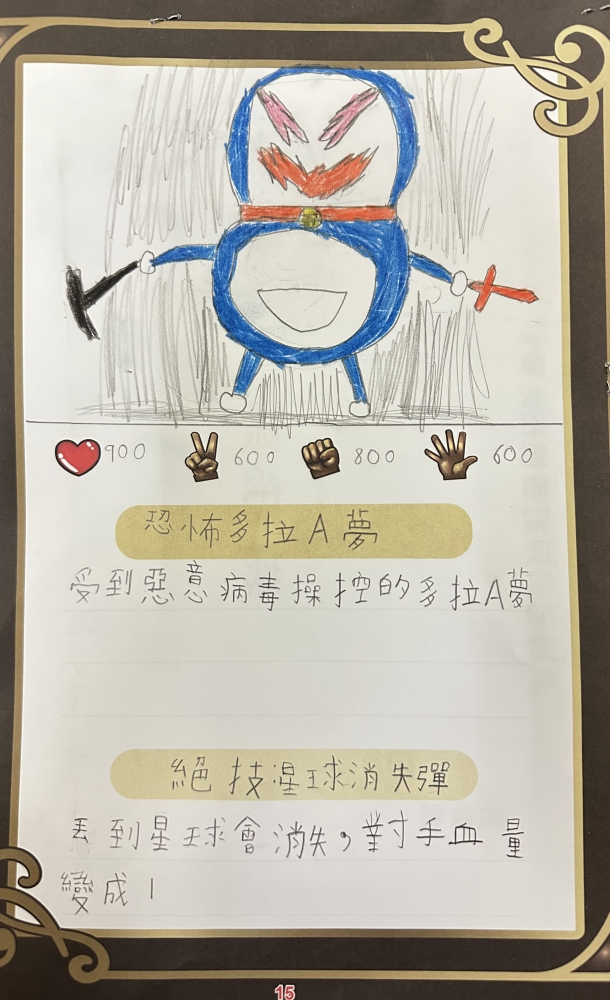 900 600 800 600
恐怖多拉A夢
受到惡意病毒操控的多拉A夢
絕技星球消失彈
丟到星球會消失,對手血量
變成1
15